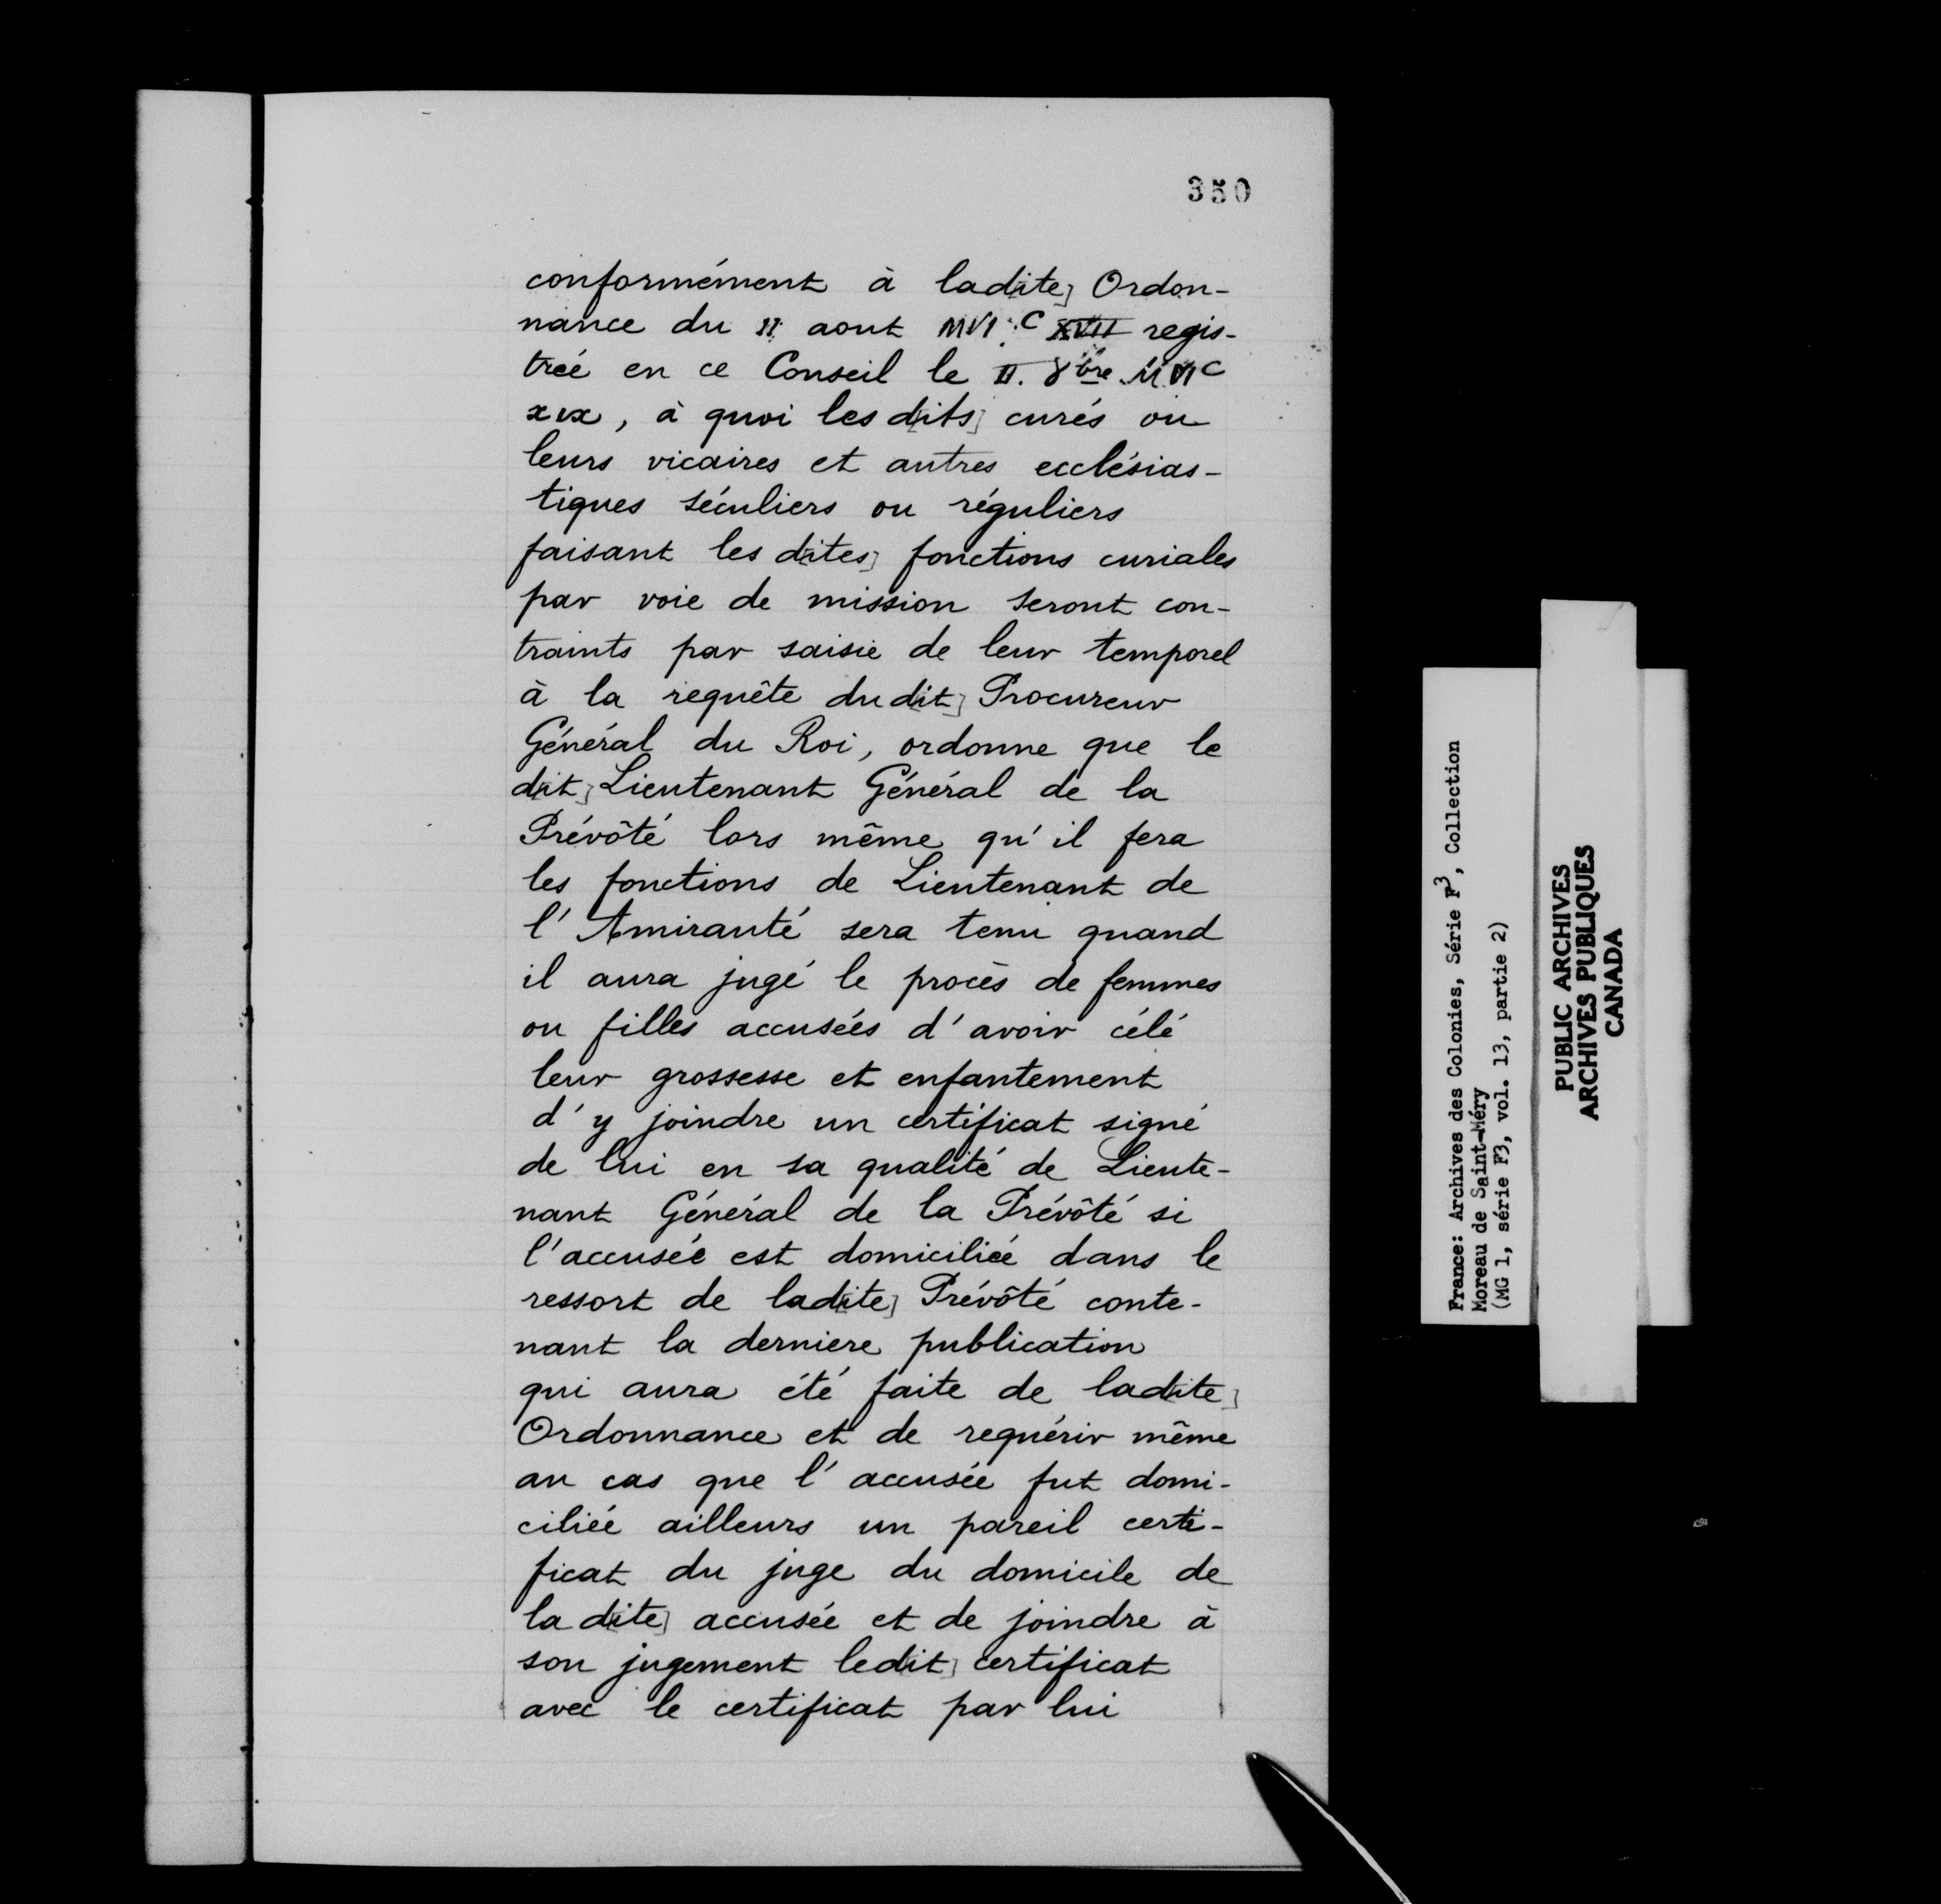 350
conformément à lad[ite] Ordon-
nance du II aout MVI.C XVII regis-
trée en ce Conseil le II. 8bre MVIC
xix, à quoi les d[its] curés ou
leurs vicaires et autres ecclésias-
tiques séculiers ou réguliers
faisant les d[ites] fonctions curiales
par voie de mission seront con-
traints par saisie de leur temporel
à la requête dud[it] Procureur
Général du Roi, ordonne que le
d[it] Lieutenant Général de la
Prévôté lors même qu'il fera
les fonctions de Lieutenant de
l'Amirauté sera tenu quand
il aura jugé le procès de femmes
ou filles accusées d'avoir célé
leur grossesse et enfantement
d'y joindre un certificat signé
de lui en sa qualité de Lieute-
nant Général de la Prévôté si
l'accusée est domiciliée dans le
ressort de lad[ite] Prévôté conte-
nant la derniere publication
qui aura été faite de lad[ite]
Ordonnance et de requérir même
au cas que l'accusée fut domi-
ciliée ailleurs un pareil certi-
ficat du juge du domicile de
la d[ite] accusée et de joindre à
son jugement led[it] certificat
avec le certificat par lui
France: Archives des Colonies, Série F3, Collection
Moreau de Saint-Méry
(MG 1, série F3, vol. 13, partie 2)
PUBLIC ARCHIVES
ARCHIVES PUBLIQUES
CANADA